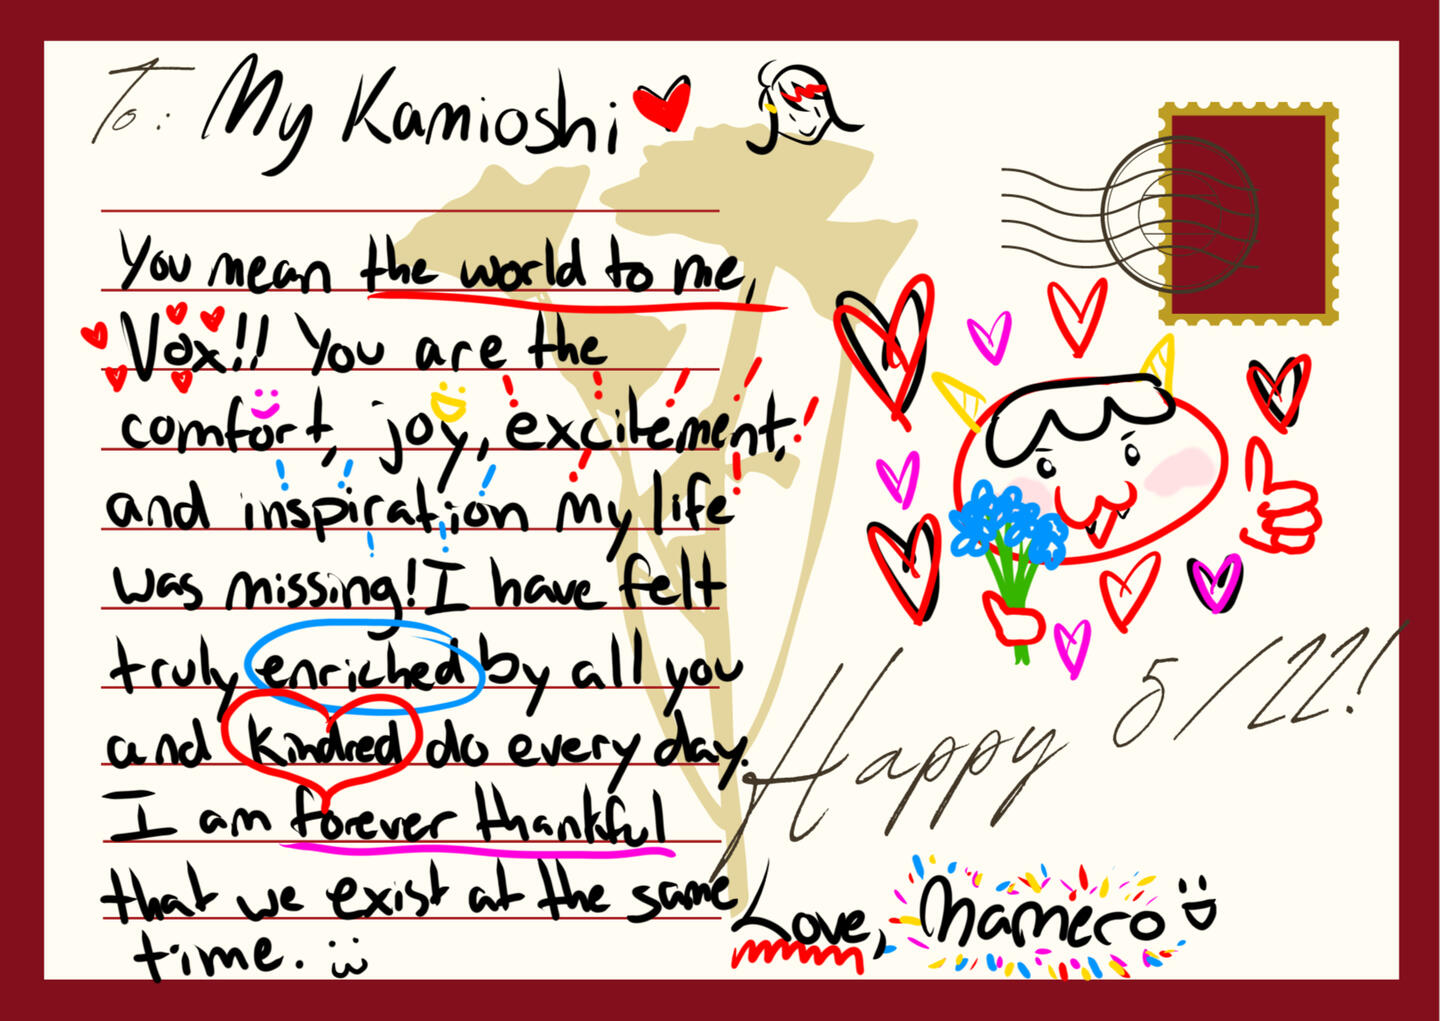 To: My Kamioshi
You mean the world to me,
Vox!! You are the
comfort, joy, excitement,
and inspiration my life
was missing! I have felt
truly enriched by all you
and kindred do every day.
I am forever thankful
that we exist at the same
time. :3
Happy 5/22!
Love, Mamero :D